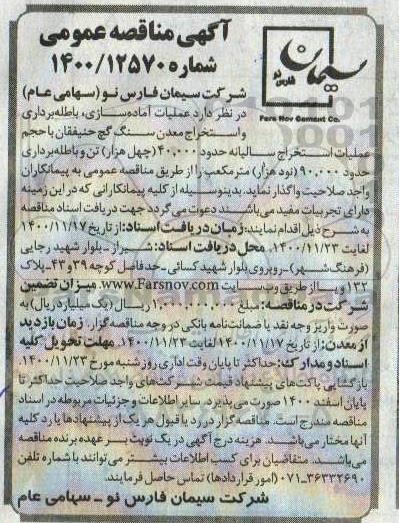 آگهی مناقصه عمومی
شماره ۱۴۰۰/۱۲۵۷۰
سیمان
فارس نو
Fars Nov Cement Co.
شرکت سیمان فارس نو (سهامی عام)
در نظر دارد عملیات آماده‌سازی، باطله‌برداری
و استخراج معدن سنگ گچ حنیفقان با حجم
عملیات استخراج سالیانه حدود ۴۰,۰۰۰ (چهل هزار) تن و باطله‌برداری
حدود ۹۰,۰۰۰ (نود هزار) مترمکعب را از طریق مناقصه عمومی به پیمانکاران
واجد صلاحیت واگذار نماید. بدینوسیله از کلیه پیمانکارانی که در این زمینه
دارای تجربیات مفید می‌باشند دعوت می‌گردد جهت دریافت اسناد مناقصه
به شرح ذیل اقدام نمایند: زمان دریافت اسناد: از تاریخ ۱۴۰۰/۱۱/۱۷
لغایت ۱۴۰۰/۱۱/۲۳. محل دریافت اسناد: شیراز- بلوار شهید رجایی
(فرهنگ‌شهر) - روبروی بلوار شهید کسائی - حدفاصل کوچه ۳۹ و ۴۳ - پلاک
۱۳۲ و یا از طریق وب سایت www.Farsnov.com. میزان تضمین
شرکت در مناقصه: مبلغ ۱,۰۰۰,۰۰۰,۰۰۰ ریال (یک میلیارد ریال) به
صورت واریز وجه نقد یا ضمانت‌نامه بانکی در وجه مناقصه‌گزار. زمان بازدید
از معدن: از تاریخ ۱۴۰۰/۱۱/۱۷ لغایت ۱۴۰۰/۱۱/۲۳. مهلت تحویل کلیه
اسناد و مدارک: حداکثر تا پایان وقت اداری روز شنبه مورخ ۱۴۰۰/۱۱/۲۳
بازگشایی پاکت‌های پیشنهاد قیمت شرکت‌های واجد صلاحیت حداکثر تا
پایان اسفند ۱۴۰۰ صورت می‌پذیرد. سایر اطلاعات و جزئیات مربوطه در اسناد
مناقصه مندرج است. مناقصه‌گزار در رد یا قبول هر یک از پیشنهادها یا رد کلیه
آنها مختار می‌باشد. هزینه درج آگهی در یک نوبت بر عهده برنده مناقصه
می‌باشد. متقاضیان برای کسب اطلاعات بیشتر می‌توانند با شماره تلفن
۰۷۱-۳۶۳۳۲۶۹۰ (امور قراردادها) تماس حاصل فرمایند.
شرکت سیمان فارس نو - سهامی عام